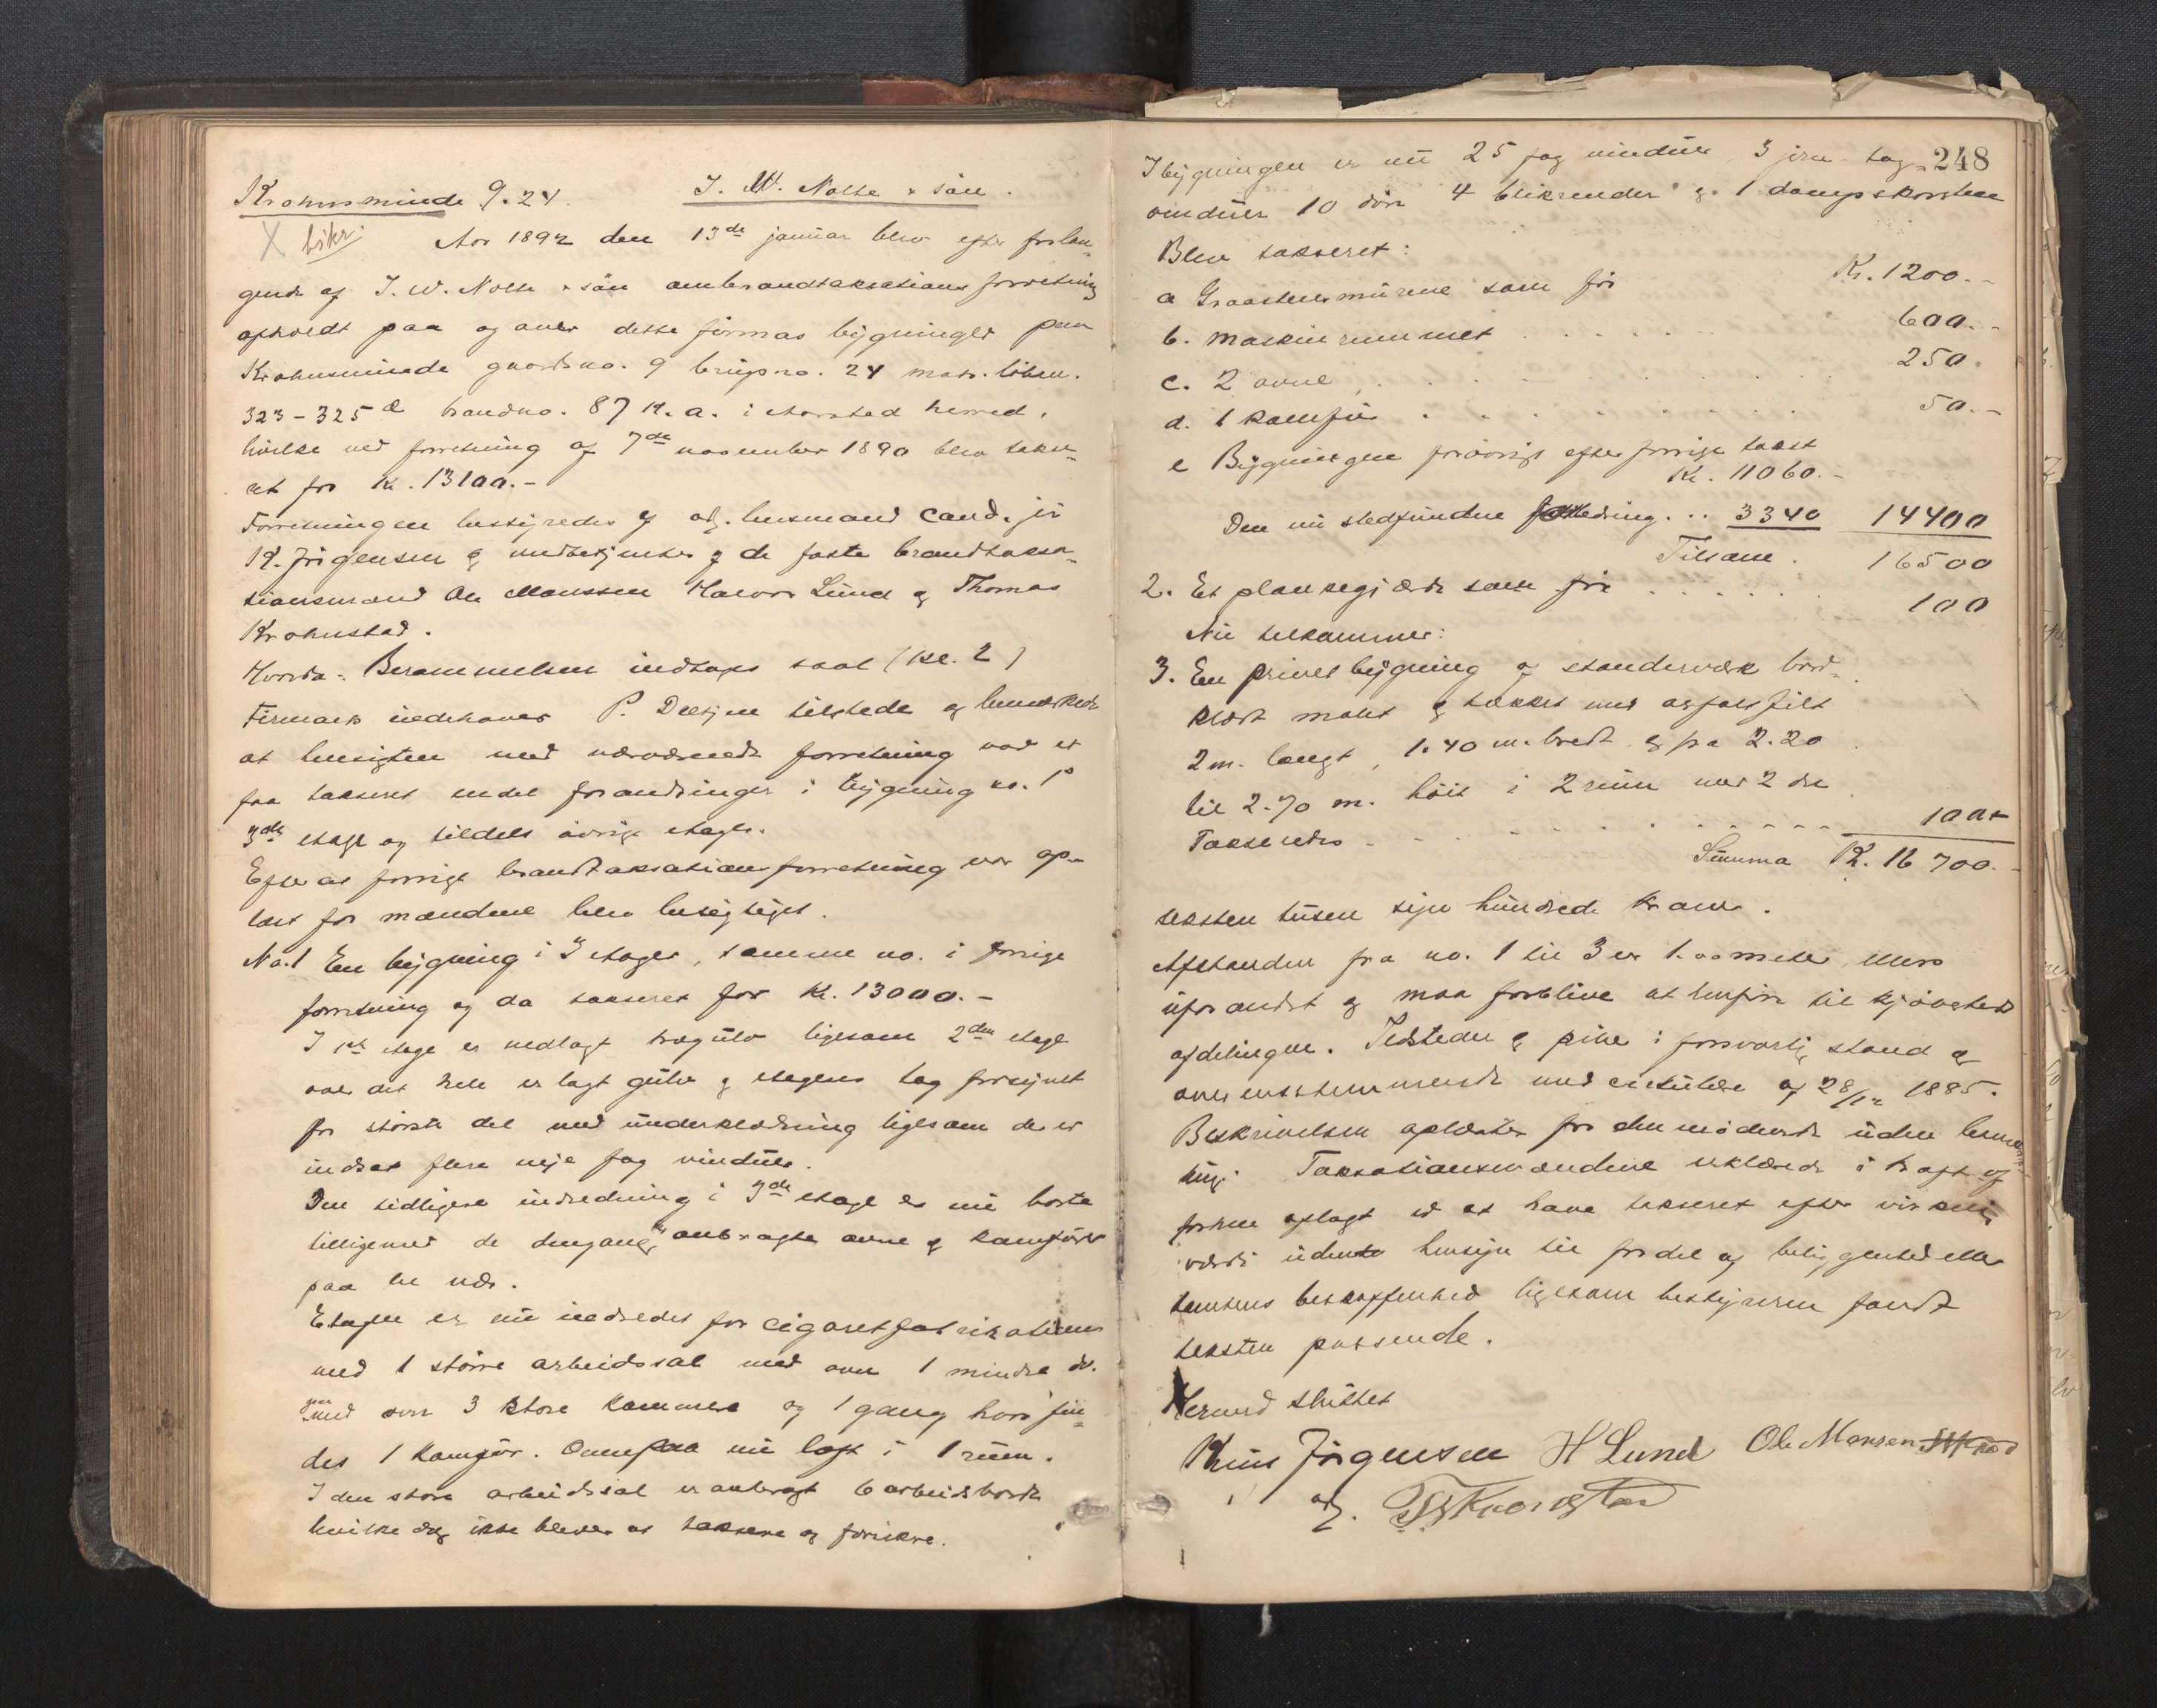 Krohnsminde 9.24. J. W. Nolte & sön.
bskr.
Aar 1892 den 13de januar blev efter forlan-
gende af J. W. Nolte & sön ombrandtaksationsforretning
afholdt paa og over dette firmas bygninger paa
Krohnsminde gaardsno. 9 brugsno. 24 matr. löben.
323-325 d brandno. 87 K. a. i Aarstad herred,
hvilke ved forretning af 7de november 1890 blev takse-
ret for Kr. 13100.-
Forretningen bestyredes af adj. lensmand Cand. jur
K. Jörgensen og medbetjentes af de faste brandtaksa-
tionsmænd Ole Monssen Halvor Lund og Thomas
Krohnstad.
Hvorda: Berammelsen indtages saal (Kl. 2)
Firmaets indehaver P. tilstede og bemerkede
at hensigten med nærværende forretning var at
faa takseret endel forandringer i bygning no. 1
3die etage og tildels övrige etager.
Efter at forrige brandtaksationsforretning var op-
læst for mændene blev besigtiget.
No. 1 En bygning i 3 etager, samme no. i forrige
forretning og da takseret for Kr. 13000.-
I 1st etage er nedlagt trægulv ligesom 2den etage
over det hele er lagt gulv og etagens tag forsynet
for störste del med underklædning ligesom der er
indsat flere nye fag vinduer.
Den tidligere indredning i 3die etage er nu borte
tilligemed de dengang anbragte ovne og komfürer
paa en nær.
Etagen er nu indredet for cigaretfabrikationen
med 1 större arbeidssal med ovn 1 mindre do.
med ovn 3 store kammere og 1 gang hvori fin-
des 1 komfür. Ovenpaa nu loft i 1 rum.
I den store arbeidssal er anbragt 6 arbeidsborde
hvilke dog ikke bleve at taksere og forsikre.
248
I bygningen er nu 25 fag vinduer 3 jern tag-
vinduer 10 döre 4 blikrender og 1 dampskorsten
Blev takseret:
a Graastensmurene som för Kr. 1200.-
b. maskinrummet . . . 600.-
c. 2 ovne . . . 250.
d. 1 komfür . . . 50.-
e Bygningen forövrigt efter forrige takst
Kr. 11060.-
Den nu stedfundne forbedring . . 3340 14400
Tilsam. 16500
2. Et plankegjærde som för . . . 100
Nu tilkommer:
3. En privetbygning af standerverk bord-
klædt malet og tækket med asfaltfilt
2 m. langt, 1.40 m. bredt og fra 2.20
til 2.70 m. höit i 2 rum med 2 döre
Takseredes . . . 100.-
Summa Kr. 16700.-
seksten tusen syv hundrede kroner.
Afstanden fra no. 1 til 3 er 1.00 meter, ellers
uforandret og maa forblive at henföre til kjöbsteds
afdelingen. Ildsteder og piber i forsvarlig stand og
overensstemmende med cirkulære af 28/12 1885.
Beskrivelsen oplæstes for den mödende uden bemærk-
ning. Taksationsmændene erklærede i kraft af
forhen aflagt ed at have takseret efter virkelig
værdi uden hensyn til fordel af beliggenhed eller
tomtens beskaffenhed ligesom bestyreren fandt
taksten passende.
Hermed sluttet
Knus Jörgensen H Lund Ole Monsen
adj. T Krohnstad